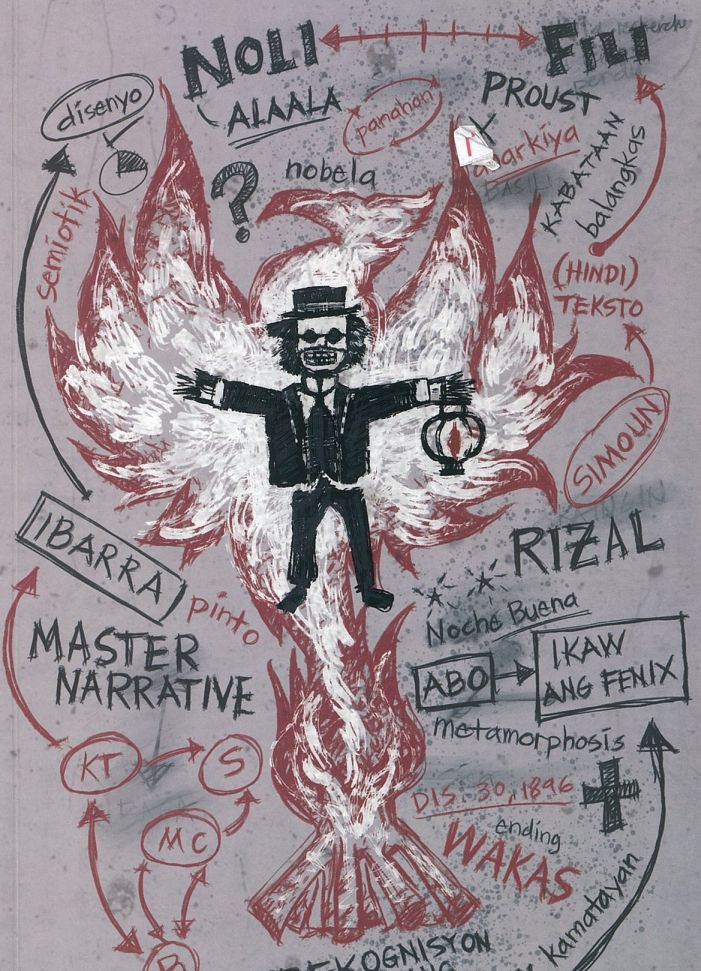 NOLI
FILI
disenyo
ALAALA
panahon
PROUST
nobela
KABATAAN
balangkas
semiotik
(HINDI)
TEKSTO
SIMOUN
IBARRA
pinto
RIZAL
Noche Buena
MASTER
NARRATIVE
ABO
IKAW
ANG FENIX
metamorphosis
KT
S
MC
DIS. 30, 1896
ending
WAKAS
kamatayan